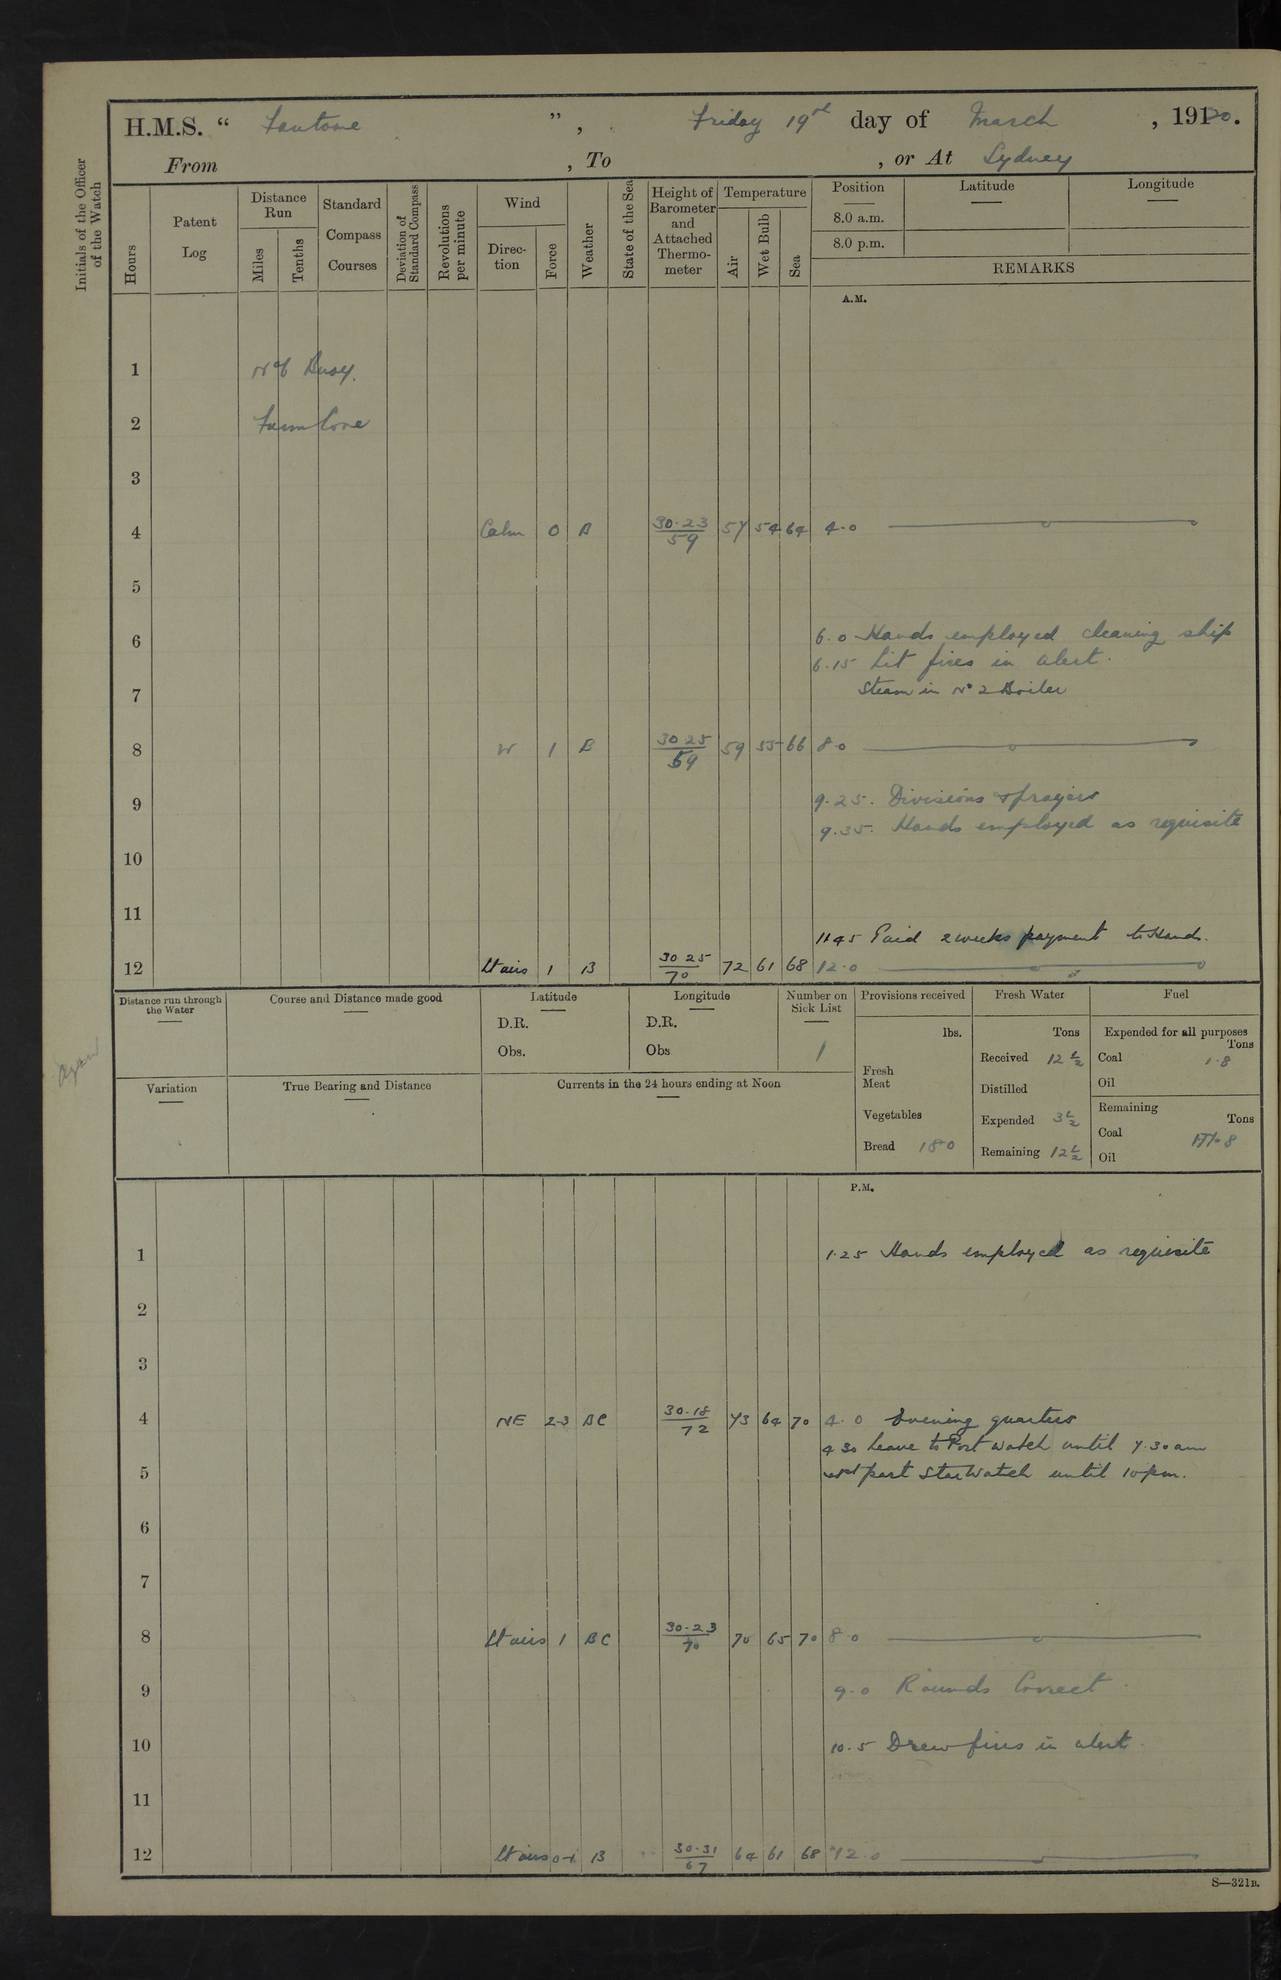 H.M.S. “ Fantome ”, Friday 19th day of March, 1920.
From , To , or At Sydney
Initials of the Officer of the Watch
Hours
Patent Log
Distance Run
Miles
Tenths
Standard Compass Courses
Deviation of Standard Compass
Revolutions per minute
Wind
Direc-tion
Force
Weather
State of the Sea
Height of Barometer and Attached Thermo-meter
Temperature
Air
Wet Bulb
Sea
Position Latitude Longitude
8.0 a.m.
8.0 p.m.
REMARKS
A.M.
1 No 6 Buoy.
2 Farm Cove
3
4 Calm 0 B 30.23/59 57 54 64 4.0
5
6 6.0 Hands employed cleaning ship
6.15 Lit fires in alert.
7 Steam in No 2 Boiler
8 W 1 B 30 25/59 59 55 66 8.0
9 9.25. Divisions & prayers
9.35. Hands employed as requisite
10
11
11 45 Paid 2 weeks payment to Hands.
12 Lt airs 1 B 30 25/70 72 61 68 12.0
Distance run through the Water
Course and Distance made good
Latitude
D.R.
Obs.
Longitude
D.R.
Obs
Number on Sick List
1
Provisions received
lbs.
Fresh Meat
Vegetables
Bread 180
Fresh Water
Tons
Received 12 1/2
Distilled
Expended 3 1/2
Remaining 12 1/2
Fuel
Expended for all purposes
Tons
Coal 1.8
Oil
Remaining
Tons
Coal
Oil
Variation
True Bearing and Distance
Currents in the 24 hours ending at Noon
P.M.
1 1.25 Hands employed as requisite
2
3
4 NE 2-3 BC 30.18/72 73 64 70 4.0 Evening quarters
4 30 Leave to Port watch until 7.30 am
5 part Star Watch until 10 pm.
6
7
8 Lt airs 1 BC 30.23/70 70 65 70 8.0
9 9.0 Rounds Correct
10 10.5 Drew fires in alert.
11
12 Lt airs 0-1 B 30.31/67 64 61 68 12.0
S—321B.